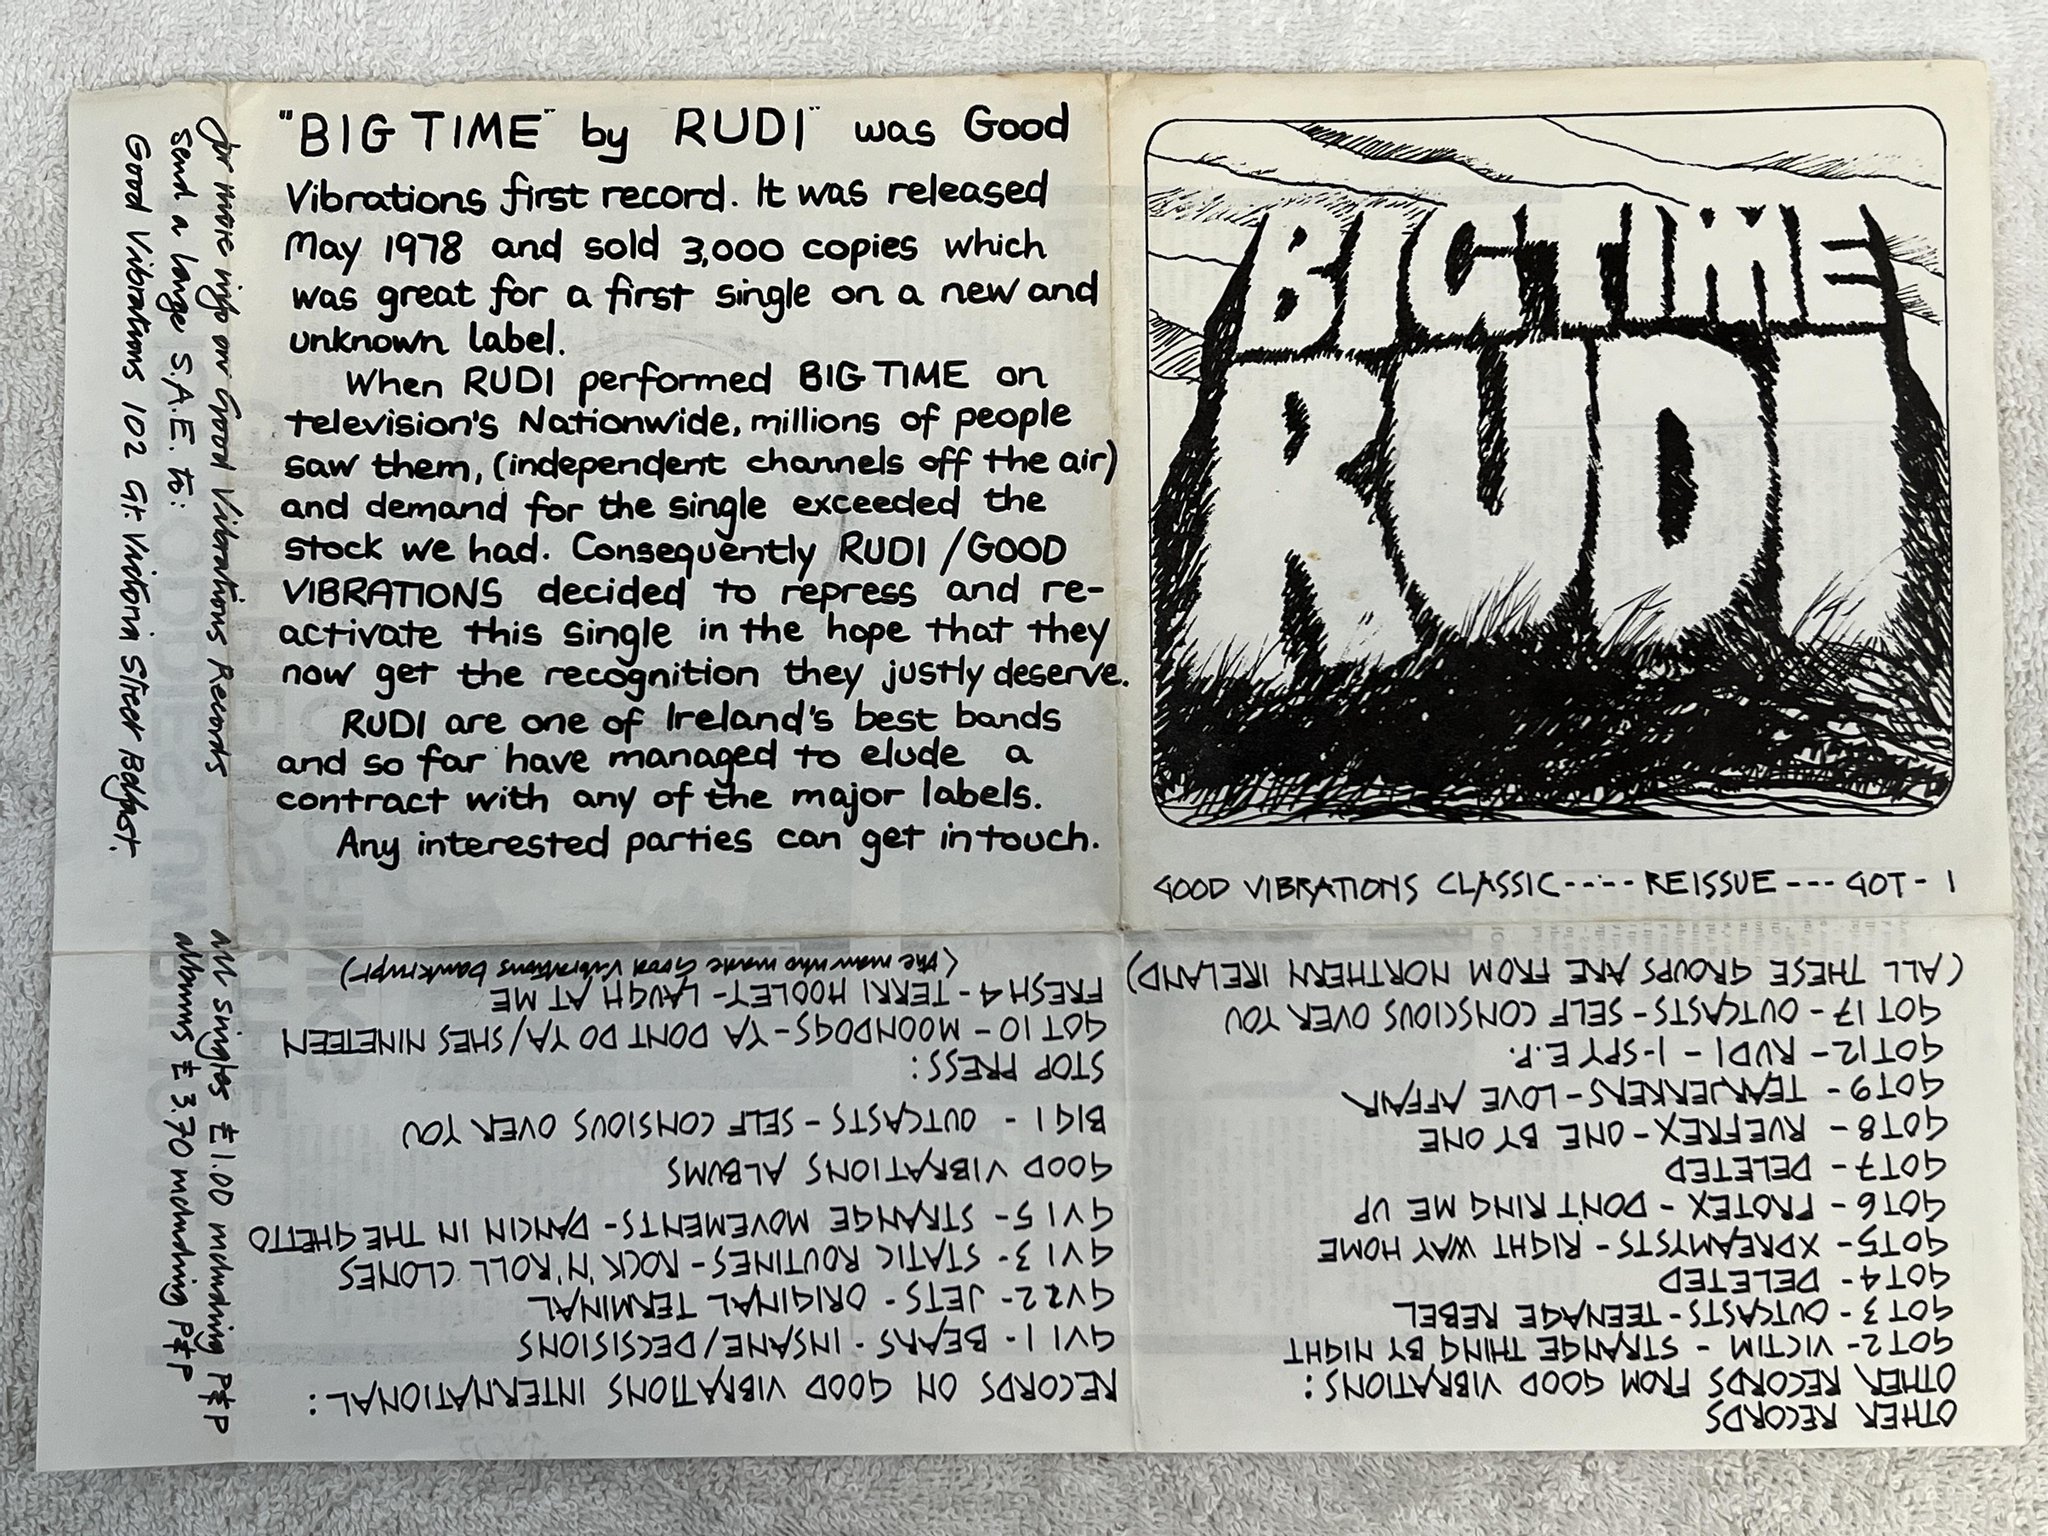 "BIG TIME" by RUDI" was Good
Vibrations first record. It was released
May 1978 and sold 3,000 copies which
was great for a first single on a new and
unknown label.
When RUDI performed BIG TIME on
television's Nationwide, millions of people
saw them, (independent channels off the air)
and demand for the single exceeded the
stock we had. Consequently RUDI / GOOD
VIBRATIONS decided to repress and re-
activate this single in the hope that they
now get the recognition they justly deserve.
RUDI are one of Ireland's best bands
and so far have managed to elude a
contract with any of the major labels.
Any interested parties can get in touch.
BIG TIME
RUDI
GOOD VIBRATIONS CLASSIC ---- REISSUE --- GOT - 1
for more info on Good Vibrations Records
send a large S.A.E. to:
Good Vibrations 102 Gt. Victoria Street Belfast.
all singles £1.00 including P&P
albums £3.70 including P&P
OTHER RECORDS
OTHER RECORDS FROM GOOD VIBRATIONS:
GOT2 - VICTIM - STRANGE THING BY NIGHT
GOT3 - OUTCASTS - TEENAGE REBEL
GOT4 - DELETED
GOT5 - XDREAMYSTS - RIGHT WAY HOME
GOT6 - PROTEX - DON'T RING ME UP
GOT7 - DELETED
GOT8 - RUEFREX - ONE BY ONE
GOT9 - TEARJERKERS - LOVE AFFAIR
GOT12 - RUDI - I-SPY E.P.
GOT17 - OUTCASTS - SELF CONSCIOUS OVER YOU
(ALL THESE GROUPS ARE FROM NORTHERN IRELAND)
RECORDS ON GOOD VIBRATIONS INTERNATIONAL:
GVI 1 - BEARS - INSANE/DECSISIONS
GVI2 2 - JETS - ORIGINAL TERMINAL
GVI 3 - STATIC ROUTINES - ROCK 'N' ROLL CLONES
GVI 5 - STRANGE MOVEMENTS - DANCIN IN THE GHETTO
GOOD VIBRATIONS ALBUMS
BIG 1 - OUTCASTS - SELF CONSIOUS OVER YOU
STOP PRESS:
GOT10 - MOONDOGS - YA DONT DO YA/SHES NINETEEN
FRESH 4 - TERRI HOOLEY - LAUGH AT ME
(the man who made Good Vibrations bankrupt)